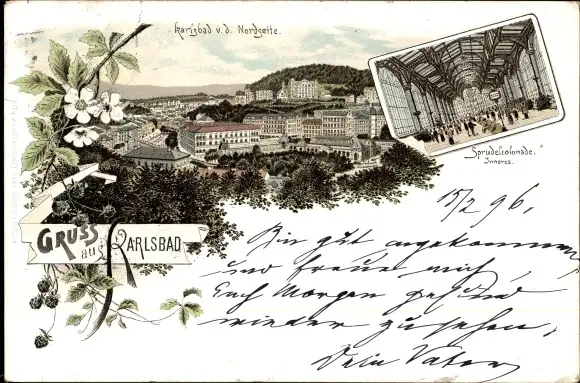 Karlsbad v. d. Nordseite.
Sprudelcolonade.
Inneres.
Gruss
aus Karlsbad
15/2 96.
Bin gut angekommen
und freue mich
Euch Morgen gesund
wieder zu sehen.
Dein Vater